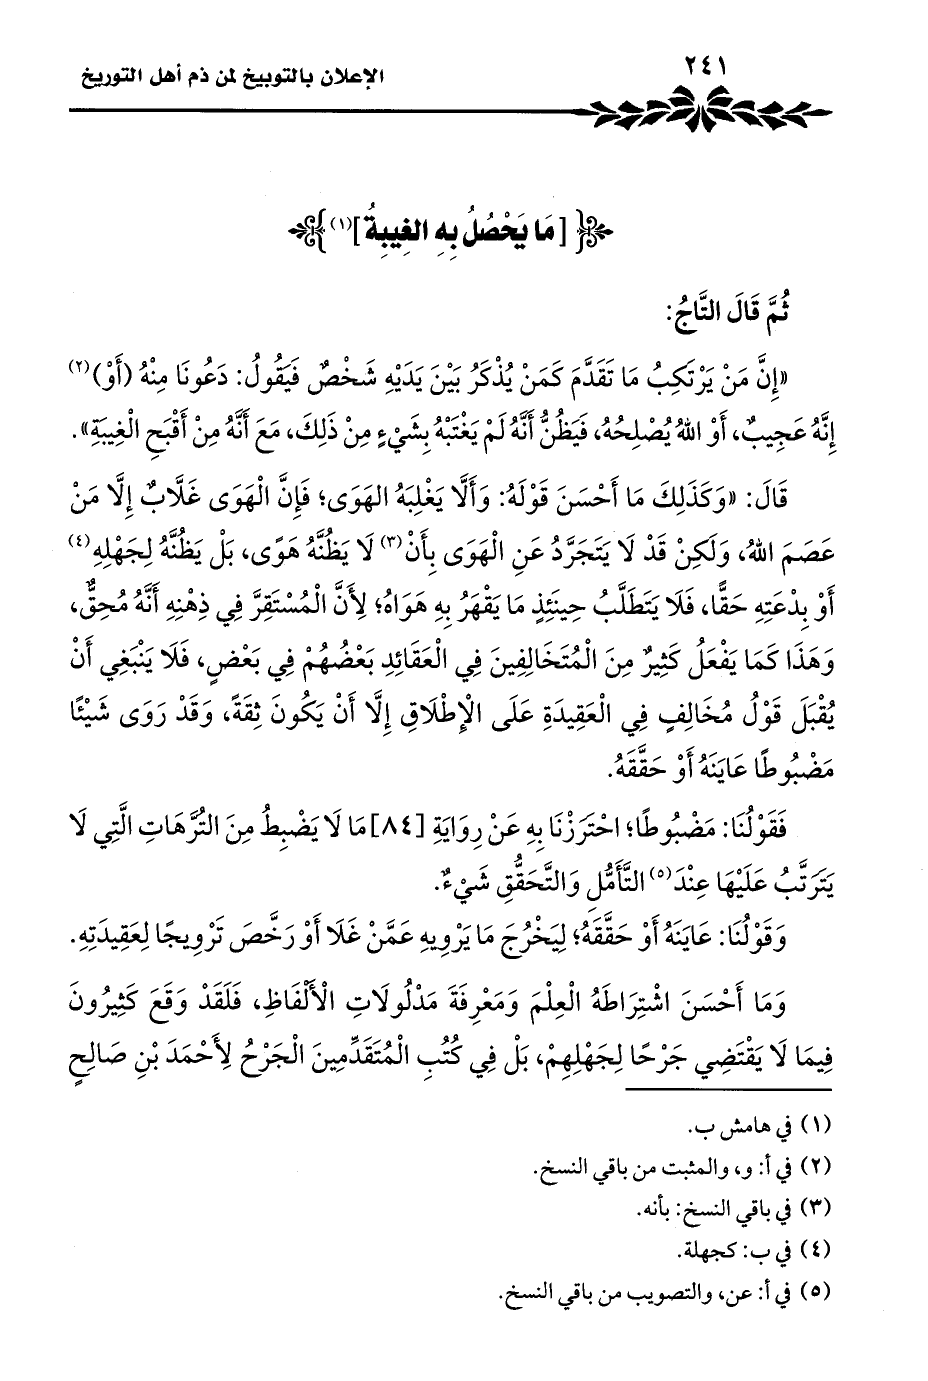 ٢٤١
الإعلان بالتوبيخ لمن ذم أهل التوريخ
[مَا يَحْصُلُ بِهِ الغِيبِةُ](١)
ثُمَّ قَالَ التَّاجُ:
«إِنَّ مَنْ يَرْتَكِبُ مَا تَقَدَّمَ كَمَنْ يُذْكَرُ بَيْنَ يَدَيْهِ شَخْصٌ فَيَقُولُ: دَعُونَا مِنْهُ (أَوْ)(٢)
إِنَّهُ عَجِيبٌ، أَوْ اللهُ يُصْلِحُهُ، فَيَظُنُّ أَنَّهُ لَمْ يَغْتَبْهُ بِشَيْءٍ مِنْ ذَلِكَ، مَعَ أَنَّهُ مِنْ أَقْبَحِ الْغِيبَةِ».
قَالَ: «وَكَذَلِكَ مَا أَحْسَنَ قَوْلَهُ: وَأَلَّا يَغْلِبَهُ الهَوَى؛ فَإِنَّ الْهَوَى غَلَّابٌ إِلَّا مَنْ
عَصَمَ اللهُ، وَلَكِنْ قَدْ لَا يَتَجَرَّدُ عَنِ الْهَوَى بِأَنْ(٣) لَا يَظُنَّهُ هَوًى، بَلْ يَظُنَّهُ لِجَهْلِهِ(٤)
أَوْ بِدْعَتِهِ حَقًّا، فَلَا يَتَطَلَّبُ حِينَئِذٍ مَا يَقْهَرُ بِهِ هَوَاهُ؛ لِأَنَّ الْمُسْتَقِرَّ فِي ذِهْنِهِ أَنَّهُ مُحِقٌّ،
وَهَذَا كَمَا يَفْعَلُ كَثِيرٌ مِنَ الْمُتَخَالِفِينَ فِي الْعَقَائِدِ بَعْضُهُمْ فِي بَعْضٍ، فَلَا يَنْبَغِي أَنْ
يُقْبَلَ قَوْلُ مُخَالِفٍ فِي الْعَقِيدَةِ عَلَى الْإِطْلَاقِ إِلَّا أَنْ يَكُونَ ثِقَةً، وَقَدْ رَوَى شَيْئًا
مَضْبُوطًا عَايَنَهُ أَوْ حَقَّقَهُ.
فَقَوْلُنَا: مَضْبُوطًا؛ احْتَرَزْنَا بِهِ عَنْ رِوَايَةِ [٨٤] مَا لَا يَضْبِطُ مِنَ التُّرَّهَاتِ الَّتِي لَا
يَتَرَتَّبُ عَلَيْهَا عِنْدَ(٥) التَّأَمُّلِ وَالتَّحَقُّقِ شَيْءٌ.
وَقَوْلُنَا: عَايَنَهُ أَوْ حَقَّقَهُ؛ لِيَخْرُجَ مَا يَرْوِيهِ عَمَّنْ غَلَا أَوْ رَخَّصَ تَرْوِيجًا لِعَقِيدَتِهِ.
وَمَا أَحْسَنَ اشْتِرَاطَهُ الْعِلْمَ وَمَعْرِفَةَ مَدْلُولَاتِ الْأَلْفَاظِ، فَلَقَدْ وَقَعَ كَثِيرُونَ
فِيمَا لَا يَقْتَضِي جَرْحًا لِجَهْلِهِمْ، بَلْ فِي كُتُبِ الْمُتَقَدِّمِينَ الْجَرْحُ لِأَحْمَدَ بْنِ صَالِحٍ
(١) في هامش ب.
(٢) في أ: و، والمثبت من باقي النسخ.
(٣) في باقي النسخ: بأنه.
(٤) في ب: كجهلة.
(٥) في أ: عن، والتصويب من باقي النسخ.